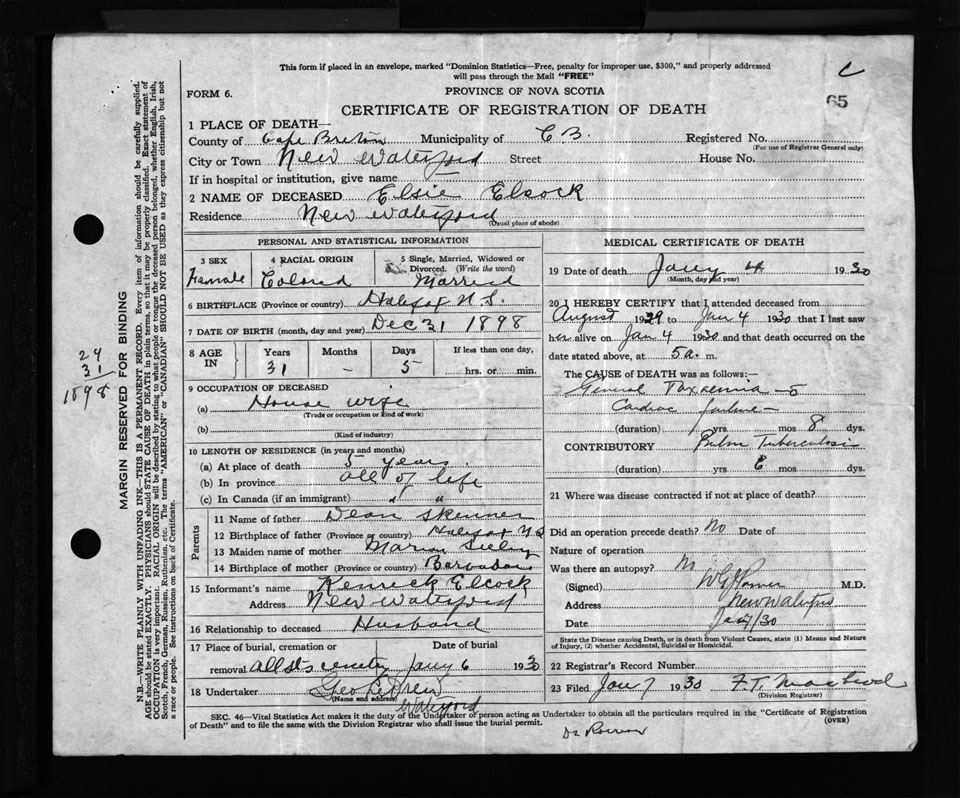 This form if placed in an envelope, marked "Dominion Statistics—Free, penalty for improper use, $300," and properly addressed
will pass through the Mail "FREE"
C
FORM 6.
PROVINCE OF NOVA SCOTIA
65
CERTIFICATE OF REGISTRATION OF DEATH
1 PLACE OF DEATH—
County of Cape Breton Municipality of C B. Registered No.
(For use of Registrar General only)
City or Town New Waterford Street House No.
If in hospital or institution, give name
2 NAME OF DECEASED Elsie Elcock
Residence New Waterford
(Usual place of abode)
PERSONAL AND STATISTICAL INFORMATION
3 SEX 4 RACIAL ORIGIN 5 Single, Married, Widowed or
Divorced. (Write the word)
Female Colored Married
6 BIRTHPLACE (Province or country) Halifax N.S.
7 DATE OF BIRTH (month, day and year) Dec 31 1898
8 AGE IN Years Months Days If less than one day,
31 - 5 hrs. or min.
9 OCCUPATION OF DECEASED
(a) House wife
(Trade or occupation or kind of work)
(b)
(Kind of industry)
10 LENGTH OF RESIDENCE (in years and months)
(a) At place of death 5 years.
(b) In province all of life
(c) In Canada (if an immigrant) " "
Parents
11 Name of father Dean Skenner
12 Birthplace of father (Province or country) Halifax N S
13 Maiden name of mother Marion
14 Birthplace of mother (Province or country)
15 Informant's name Kenrick Elcock
Address New Waterford
16 Relationship to deceased Husband
17 Place of burial, cremation or Date of burial
removal All Sts cemetry Jany 6 1930
18 Undertaker Geo
(Name and address)
Waterford
MEDICAL CERTIFICATE OF DEATH
19 Date of death Jany 4 1930
(Month, day and year)
20 I HEREBY CERTIFY that I attended deceased from
August 1929 to Jan 4 1930 that I last saw
her alive on Jan 4 1930 and that death occurred on the
date stated above, at 5 a. m.
The CAUSE of DEATH was as follows:—
General Toxaemia
Cardiac failure —
(duration) yrs mos 8 dys.
CONTRIBUTORY Pulm Tuberculosis
(duration) yrs 6 mos dys.
21 Where was disease contracted if not at place of death?
Did an operation precede death? No Date of
Nature of operation
Was there an autopsy? No
(Signed) M.D.
Address New Waterford
Date Jan 7/30
State the Disease causing Death, or in death from Violent Causes, state (1) Means and Nature
of Injury, (2) whether Accidental, Suicidal or Homicidal.
22 Registrar's Record Number
23 Filed Jan 7 1930 F. T. MacLeod
(Division Registrar)
SEC. 46—Vital Statistics Act makes it the duty of the Undertaker or person acting as Undertaker to obtain all the particulars required in the "Certificate of Registration
of Death" and to file the same with the Division Registrar who shall issue the burial permit.
(OVER)
Dr
MARGIN RESERVED FOR BINDING
N.B.—WRITE PLAINLY WITH UNFADING INK—THIS IS A PERMANENT RECORD. Every item of information should be carefully supplied.
AGE should be stated EXACTLY. PHYSICIANS should STATE CAUSE OF DEATH in plain terms, so that it may be properly classified. Exact statement of
OCCUPATION is very important. RACIAL ORIGIN will be described by stating to what people or tongue the deceased person belonged, whether English, Irish,
Scotch, French, German, Russian, Ruthenian, etc. The terms "AMERICAN" or "CANADIAN" SHOULD NOT BE USED as they express citizenship but not
a race or people. See instructions on back of Certificate.
24
31
1898